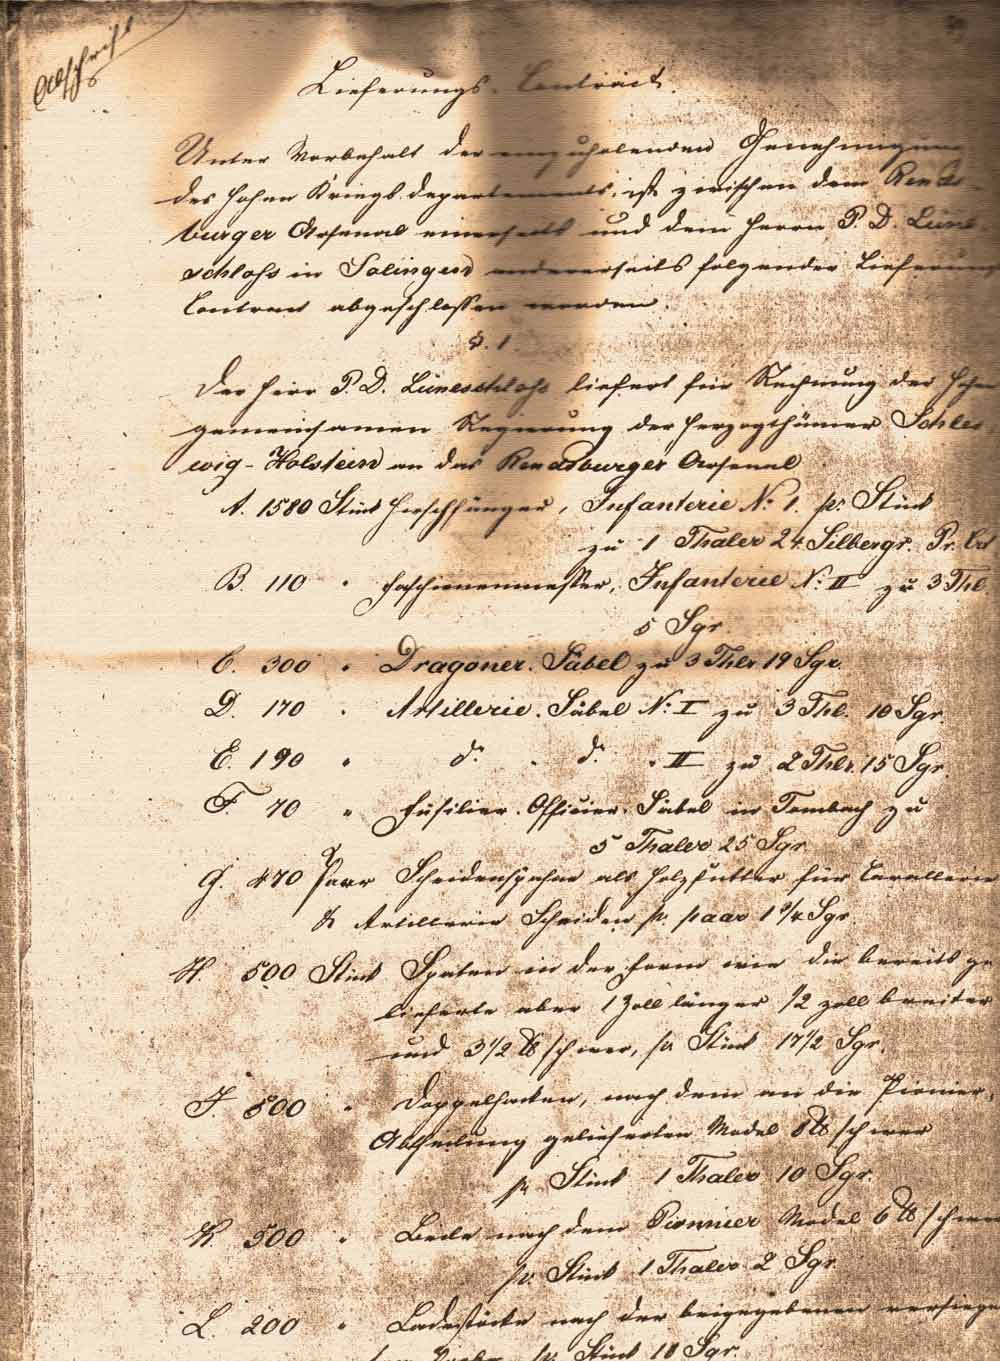 Abschrift
Lieferungs-Contract.
Unter Vorbehalt der einzuholenden Genehmigung
des hohen Kriegsdepartements, ist zwischen dem Rends-
burger Arsenal einerseits und dem Herrn P. D. Lünes-
schloss in Solingen andererseits folgender Lieferungs
Contract abgeschlossen worden.
§. 1
Der Herr P. D. Lüneschloss liefert für Rechnung der hohen
gemeinsamen Regierung der Herzogthümer Schles-
wig-Holstein an das Rendsburger Arsenal
A. 1580 Stück Hirschfänger, Infanterie No. 1. pr. Stück
zu 1 Thaler 24 Silbergr. Pr. Crt
B. 110 " Faschinenmesser, Infanterie No. II zu 3 Thl.
5 Sgr.
C. 300 " Dragoner-Säbel zu 3 Thlr. 19 Sgr.
D. 170 " Artillerie-Säbel No. I zu 3 Thl. 10 Sgr.
E. 190 " do. " do. " II zu 2 Thlr. 15 Sgr.
F. 70 " Füsilier-Officier-Säbel in Tombach zu
5 Thaler 25 Sgr.
G. 470 Paar Scheidenspähne als Holzfutter für Cavallerie
& Artillerie Scheiden pr. paar 1 3/4 Sgr
H. 500 Stück Spaten in der Form wie die bereits ge
lieferte aber 1 Zoll länger 1/2 zoll breiter
und 3 1/2 ℔ schwer, pr. Stück 17 1/2 Sgr.
J. 500 " Doppelhacken, nach dem an die Pionier-
Abtheilung gelieferten Model 8 ℔ schwer
pr. Stück 1 Thaler 10 Sgr.
K. 500 " Beile nach dem Pionnier Model 6 ℔ schwer
pr. Stück 1 Thaler 2 Sgr.
L. 200 " Ladestöcke nach der beigegebenen versiege
pr. Stück 10 Sgr.